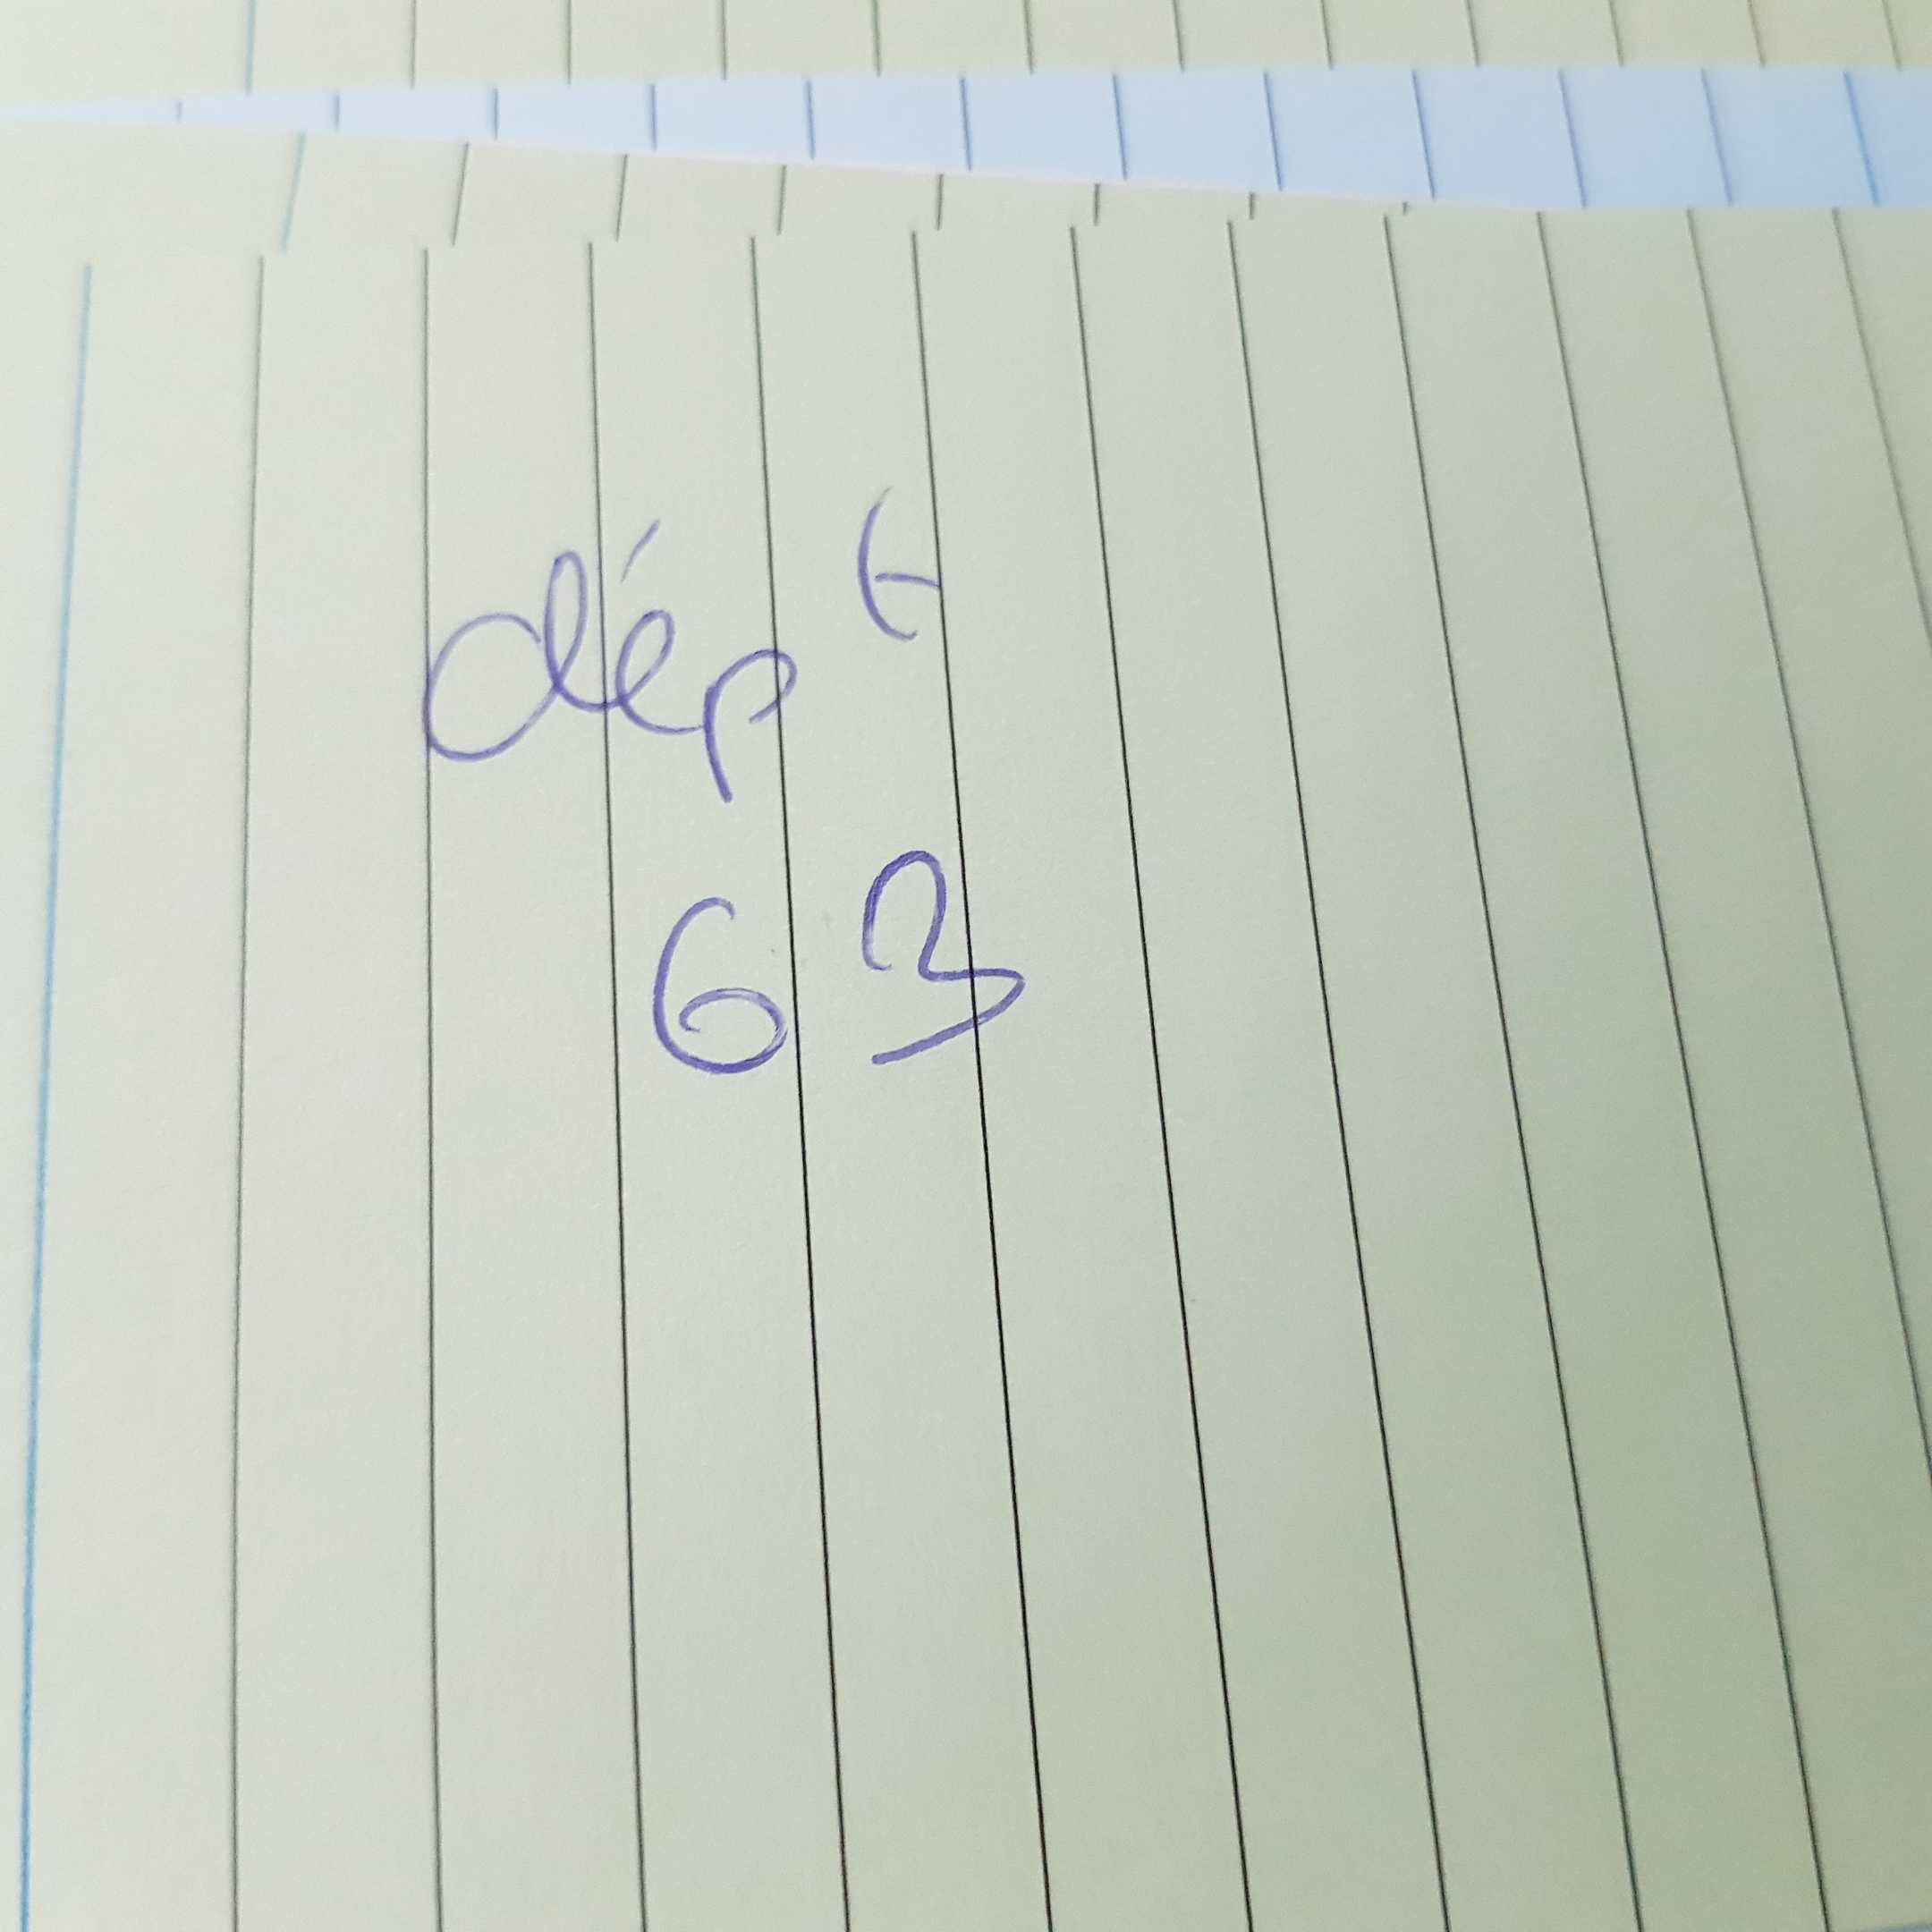 dépt
63